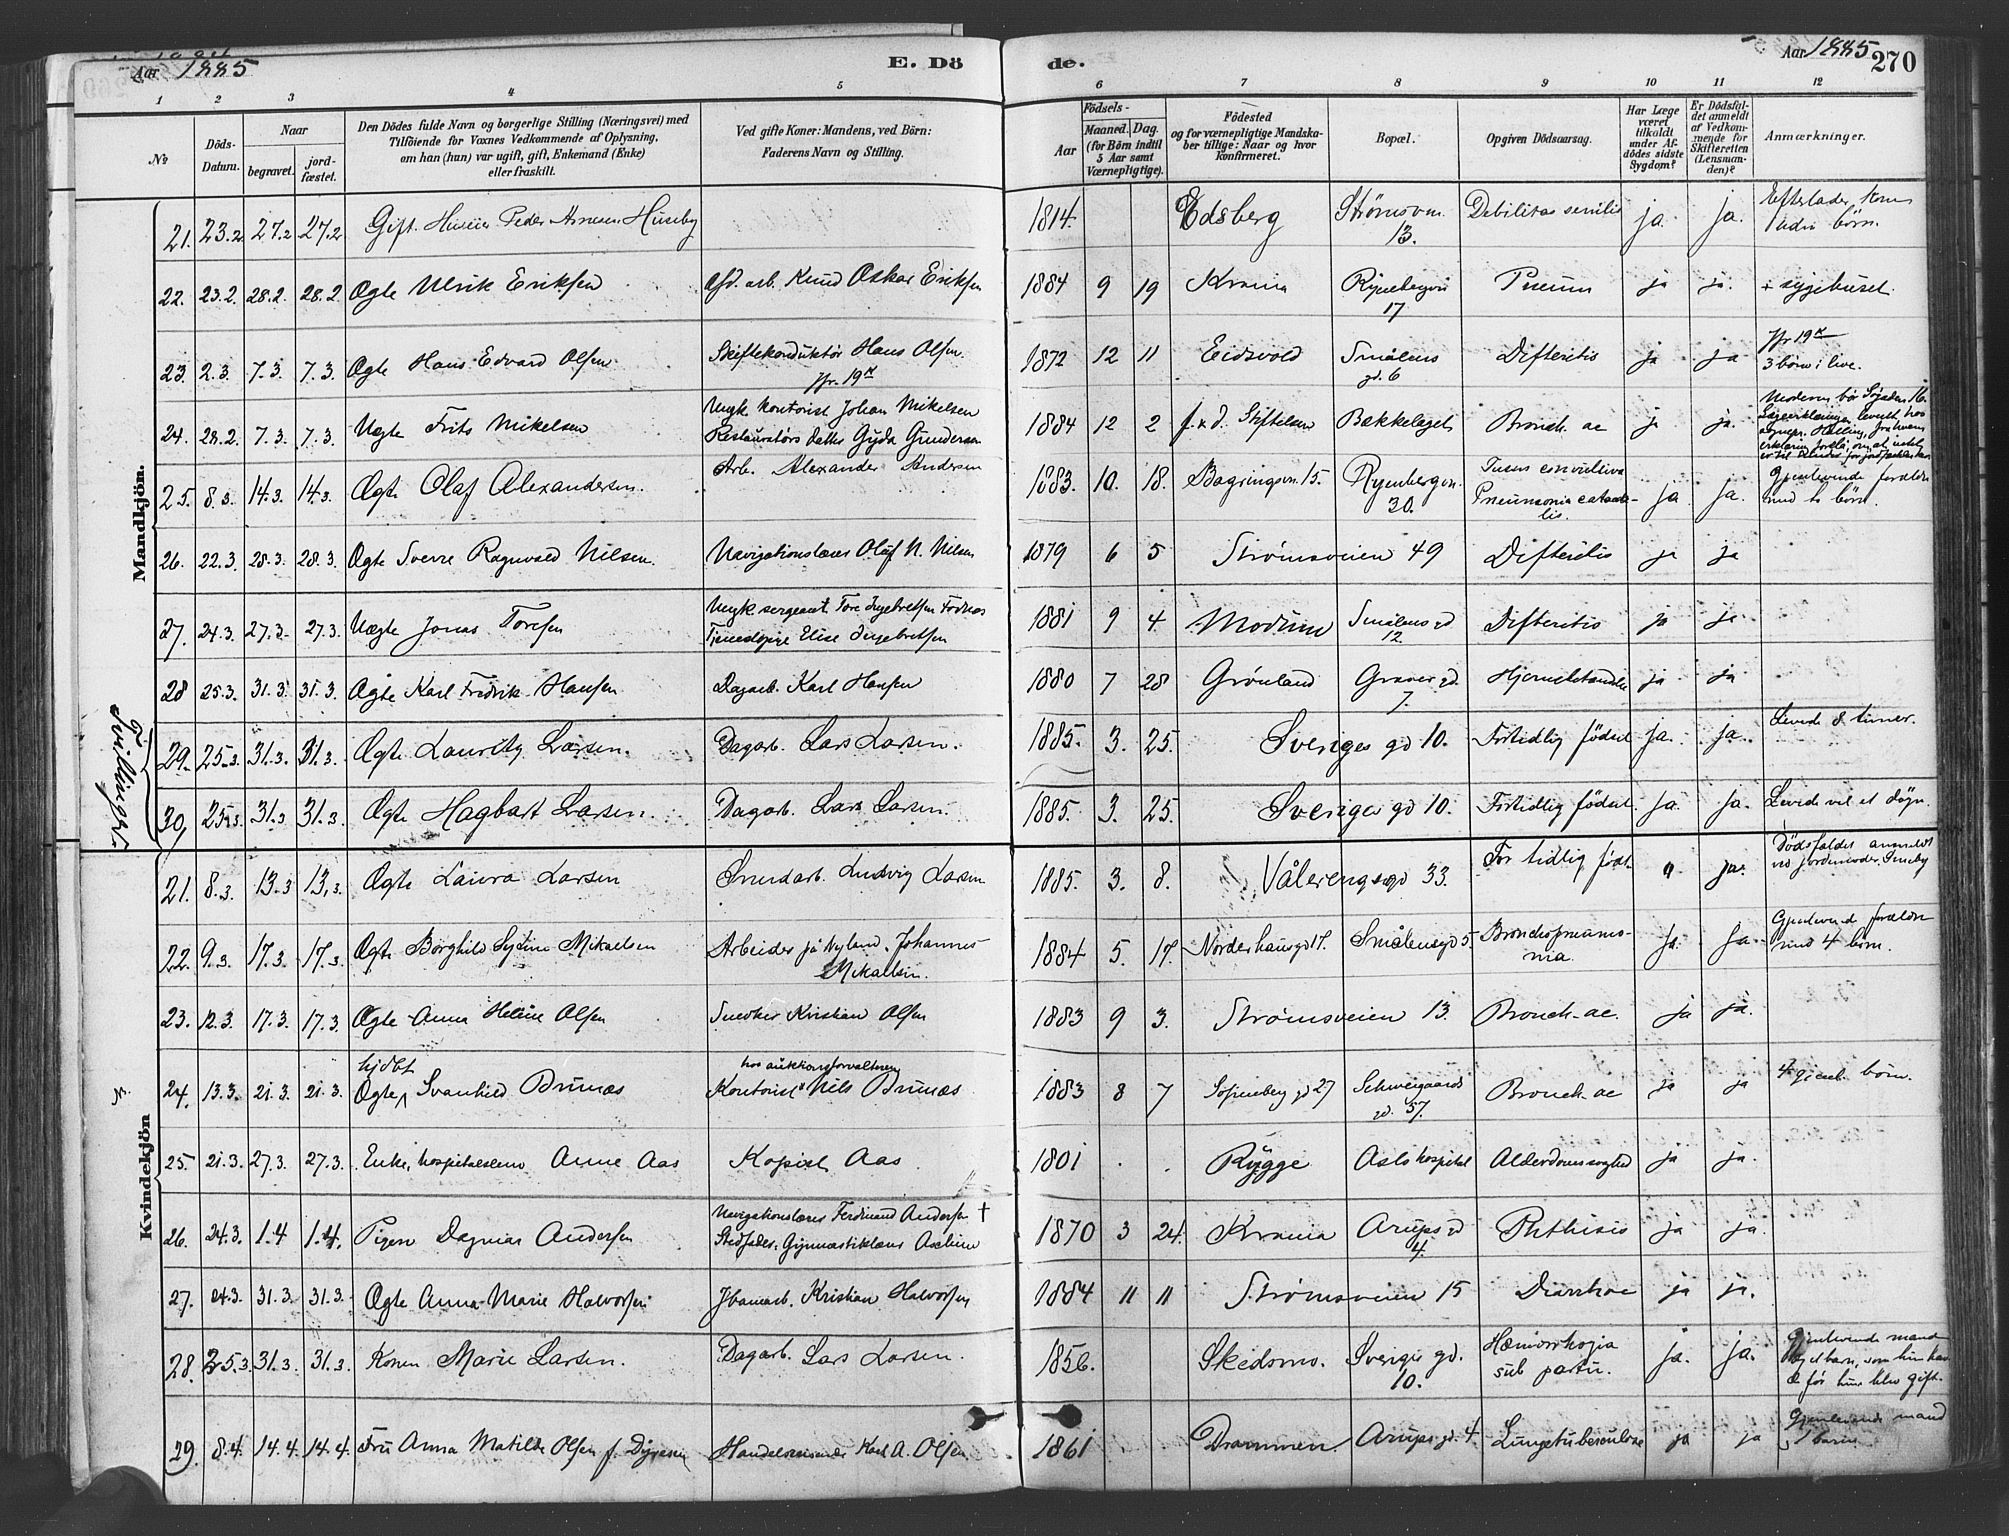 Aar 1885
E. Dö
de.
Aar 1885
270
1 2 3 4 5 6 7 8 9 10 11 12
№
Döds-Datum.
Naar
begravet.
jord-fæstet.
Den Dödes fulde Navn og borgerlige Stilling (Næringsvei) med
Tilföiende for Voxnes Vedkommende af Oplysning,
om han (hun) var ugift, gift, Enkemand (Enke)
eller fraskilt.
Ved gifte Koner: Mandens, ved Börn:
Faderens Navn og Stilling.
Födsels-
Aar
Maaned. Dag.
(for Börn indtil
5 Aar samt
Værnepligtige).
Födested
og for værnepligtige Mandska-
ber tillige: Naar og hvor
konfirmeret.
Bopæl.
Opgiven Dödsaarsag.
Har Læge
været
tilkaldt
under Af-
dödes sidste
Sygdom?
Er Dödsfal-
det anmeldt
af Vedkom-
mende for
Skifteretten
(Lensman-
den)?
Anmærkninger.
Mandkjön.
21. 23.2 27.2 27.2 Gift. Peder Arnesen Huseby 1814. Edsberg Strømsvn. 13. Debilitas senilis ja. ja. Efterlader kone børn.
22. 23.2. 28.2. 28.2 Ægte Ulrik Eriksen arb. Knud Oskar Eriksen 1884 9 19 Krania 17 Pneum ja ja. i sygehuset.
23. 2.3. 7.3. 7.3. Ægte Hans Edvard Olsen Skiftekonduktør Hans Olsen. 1872 12 11 Eidsvold Smålens gd. 6 Difteritis ja ja 3 børn i live.
24. 28.2. 7.3. 7.3. Uægte Frits Mikelsen Ungk. kontorist Johan Mikelsen
Restauratørs datter Gyda Gundersen 1884 12 2 f. x d. Stiftelsen Bækkelaget Bronch. ac ja ja.
25. 8.3. 14.3. 14.3. Ægte Olaf Alexandersen. Arb. Alexander Andersen 1883. 10. 18. 15. Rynbergvn. 30. Tussis convulsiva
Pneumonia catarrhalis ja ja. Gjenlevende forældre
med børn.
26. 22.3. 28.3. 28.3. Ægte Sverre Ragnvald Nilsen. Navigationslærer Olaf N. Nilsen 1879 6 5 Strømsveien 49 Difteritis ja ja
27. 24.3. 27.3. 27.3. Uægte Jonas Toresen Ungk. sergeant Tore Ingebretsen
Tjenestepige Elise Ingebretsen 1881 9 4 Modum Smålens gd 12 Difteritis ja ja
28 25.3. 31.3. 31.3. Ægte Karl Fredrik Hansen Dagarb. Karl Hansen 1880 7 28 Grønland Graver gd. 7. ja ja
Tvillinger
29. 25.3. 31.3. 31.3. Ægte Lauritz Larsen. Dagarb. Lars Larsen. 1885. 3. 25. Sveriges gd 10. Fortidlig fødsel ja. ja. Levede 8 timer.
30. 25.3. 31.3 31.3. Ægte Hagbart Larsen. Dagarb. Lars Larsen. 1885. 3. 25. Sveriges gd 10. Fortidlig fødsel ja. ja. Levede vel et døgn.
Kvindekjön
21. 8.3. 13.3 13.3. Ægte Laura Larsen Smedarb. Ludvig Larsen 1885. 3. 8. Vålerengsgd 33. For tidlig født. ja. Dødsfaldet anmeldt
ved jordemoder
22. 9.3. 17.3. 17.3. Ægte Borghild Mikaelsen Arbeider på Nyland. Johannes
Mikaelsen. 1884 5. 17. Norderhausgd 17. Smålensgd 5 Bronchopneumo-
nia. ja. ja. Gjenlevende forældre
med 4 børn.
23. 12.3. 17.3. 17.3. Ægte Anna Helene Olsen Snedker Kristian Olsen 1883 9 3. Strømsveien 13. Bronch. ac. ja ja.
24. 13.3. 21.3. 21.3. hjdbt
Ægte Svanhild Brunæs hos auktionsforvalteren
Kontorist Nils Brunæs 1883 8 7 Sofienberg gd 27 Schweigaards gd. 57. Bronch. ac ja ja børn.
25. 21.3. 27.3. 27.3. Enke, hospitalslem Anne Aas Kopist Aas 1801 . . Rygge Aslo hospital Alderdomssvaghed ja ja.
26. 24.3. 1.4 1.4. Pigen Dagmar Andersen Navigationslærer Ferdinand Andersen †
Stedfader: Gymnastiklærer 1870 3 24. Krania Arups gd 4. Phthisis ja ja.
27. 24.3. 31.3. 31.3. Ægte Anna Marie Halvorsen Jbanearb. Kristian Halvorsen 1884 11 11 Strømsveien 15 Diarrhoe ja ja.
28. 25.3. 31.3. 31.3. Konen Marie Larsen. Dagarb. Lars Larsen. 1856. Skedsmo. Sveriges gd. 10. Hæmorrhagia
sub partu. ja. ja. Gjenlevende mand
og et barn, som hun havde
før hun blev gift.
29. 8.4. 14.4. 14.4. Fru Anna Matilde Olsen f. Handelsreisende Karl A. Olsen 1861 Drammen Arups gd. 4. Lungetuberculose ja ja Gjenlevende mand
1 barn